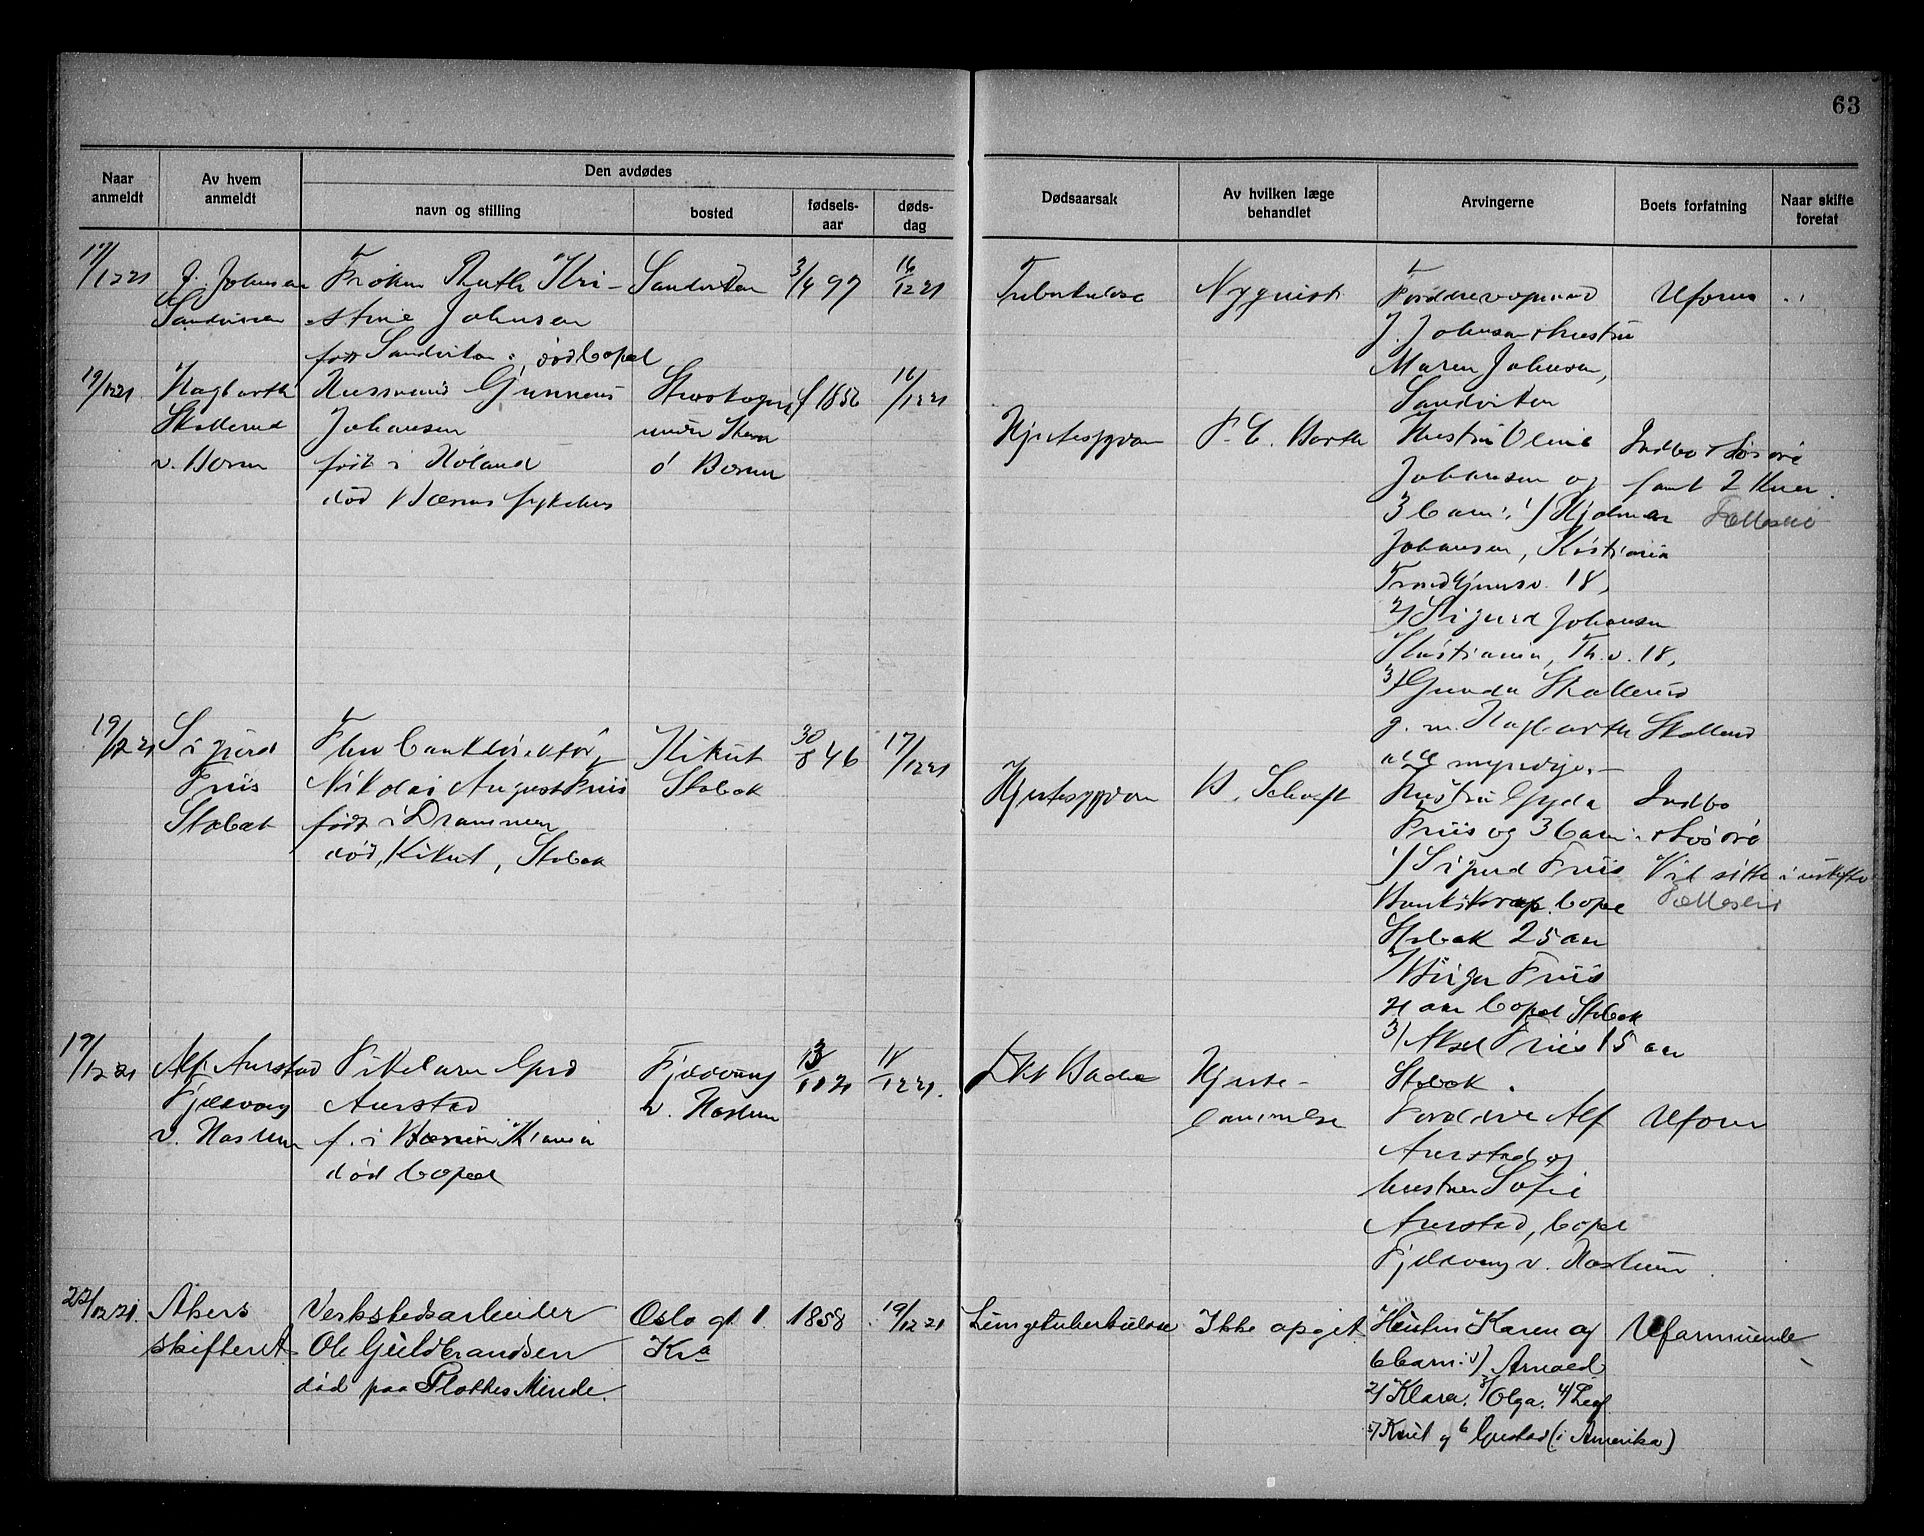 63
Naar anmeldt
Av hvem anmeldt
Den avdødes
navn og stilling
bosted
fødsels-aar
døds-dag
Dødsaarsak
Av hvilken læge behandlet
Arvingerne
Boets forfatning
Naar skifte foretat
17/12 21
J. Johnsen
Sandviken
Frøken Ruth Kri-
stine Johnsen
født Sandviken, død bopæl
Sandviken
3/4 97
16/12 21
Tuberkulose
Nyquist
Forældre vognmand
J. Johnsen + hustru
Maren Johnsen,
Sandviken
Uformu
19/12 21
Hagbarth
Skollerud
v. Bærum
Husmand Gunnerius
Johansen
født i Høland
død Bærums sykehus
under
Bærum
f 1856
16/12 21
Hjertesygdom
P. C. Barth
Hustru Oline
Johansen og
3 barn: 1/ Hjalmar
Johansen, Kristiania
Trondhjemsv. 18,
2/ Sigurd Johansen
Kristiania, Th.v. 18,
3/ Gunda Skollerud
g. m. Hagbarth Skollerud
alle myndige.
Indbo + løsøre
samt 2 kuer.
Fælleseie
19/12 21
Sigurd
Friis
Stabæk
Fhv bankdirektør
Nikolai August Friis
født i Drammen
død, Kikut, Stabæk
Kikut
Stabæk
30/8 46
17/12 21
Hjertesygdom
B. Schøft
Hustru Gyda
Friis og 3 barn:
1/ Sigurd Friis
Bankkorresp. bopæl
Stabæk 25 aar
2/ Birger Friis
21 aar bopæl Stabæk
3/ Aksel Friis 15 aar
Stabæk.
Indbo
+ løsøre
Vil sitte i uskifte
Fælleseie
19/12 21
Alf Aurstad
Fjeldvang
v. Haslum
Pikebarn Gerd
Aurstad
f. i Bærum
død bopæl
Fjeldvang
v. Haslum
13/10 21
18/12 21.
Dr Backe
Hjerte-
lammelse
Forældre Alf
Aurstad og
hustru Sofie
Aurstad, bopæl
Fjeldvang v. Haslum.
Uformu
22/12 21.
Akers
skifteret
Verkstedsarbeider
Ole Guldbrandsen
død paa Plattes Minde.
Oslo gt 1
Kra
1858
19/12 21
Lungetuberkulose
Ikke opgit
Hustru Karen og
6 barn: 1/ Arnold
2/ Klara. 3/ Olga. 4/ Leif
5/ Knut og 6 Gustav (i Amerika)
Uformuende